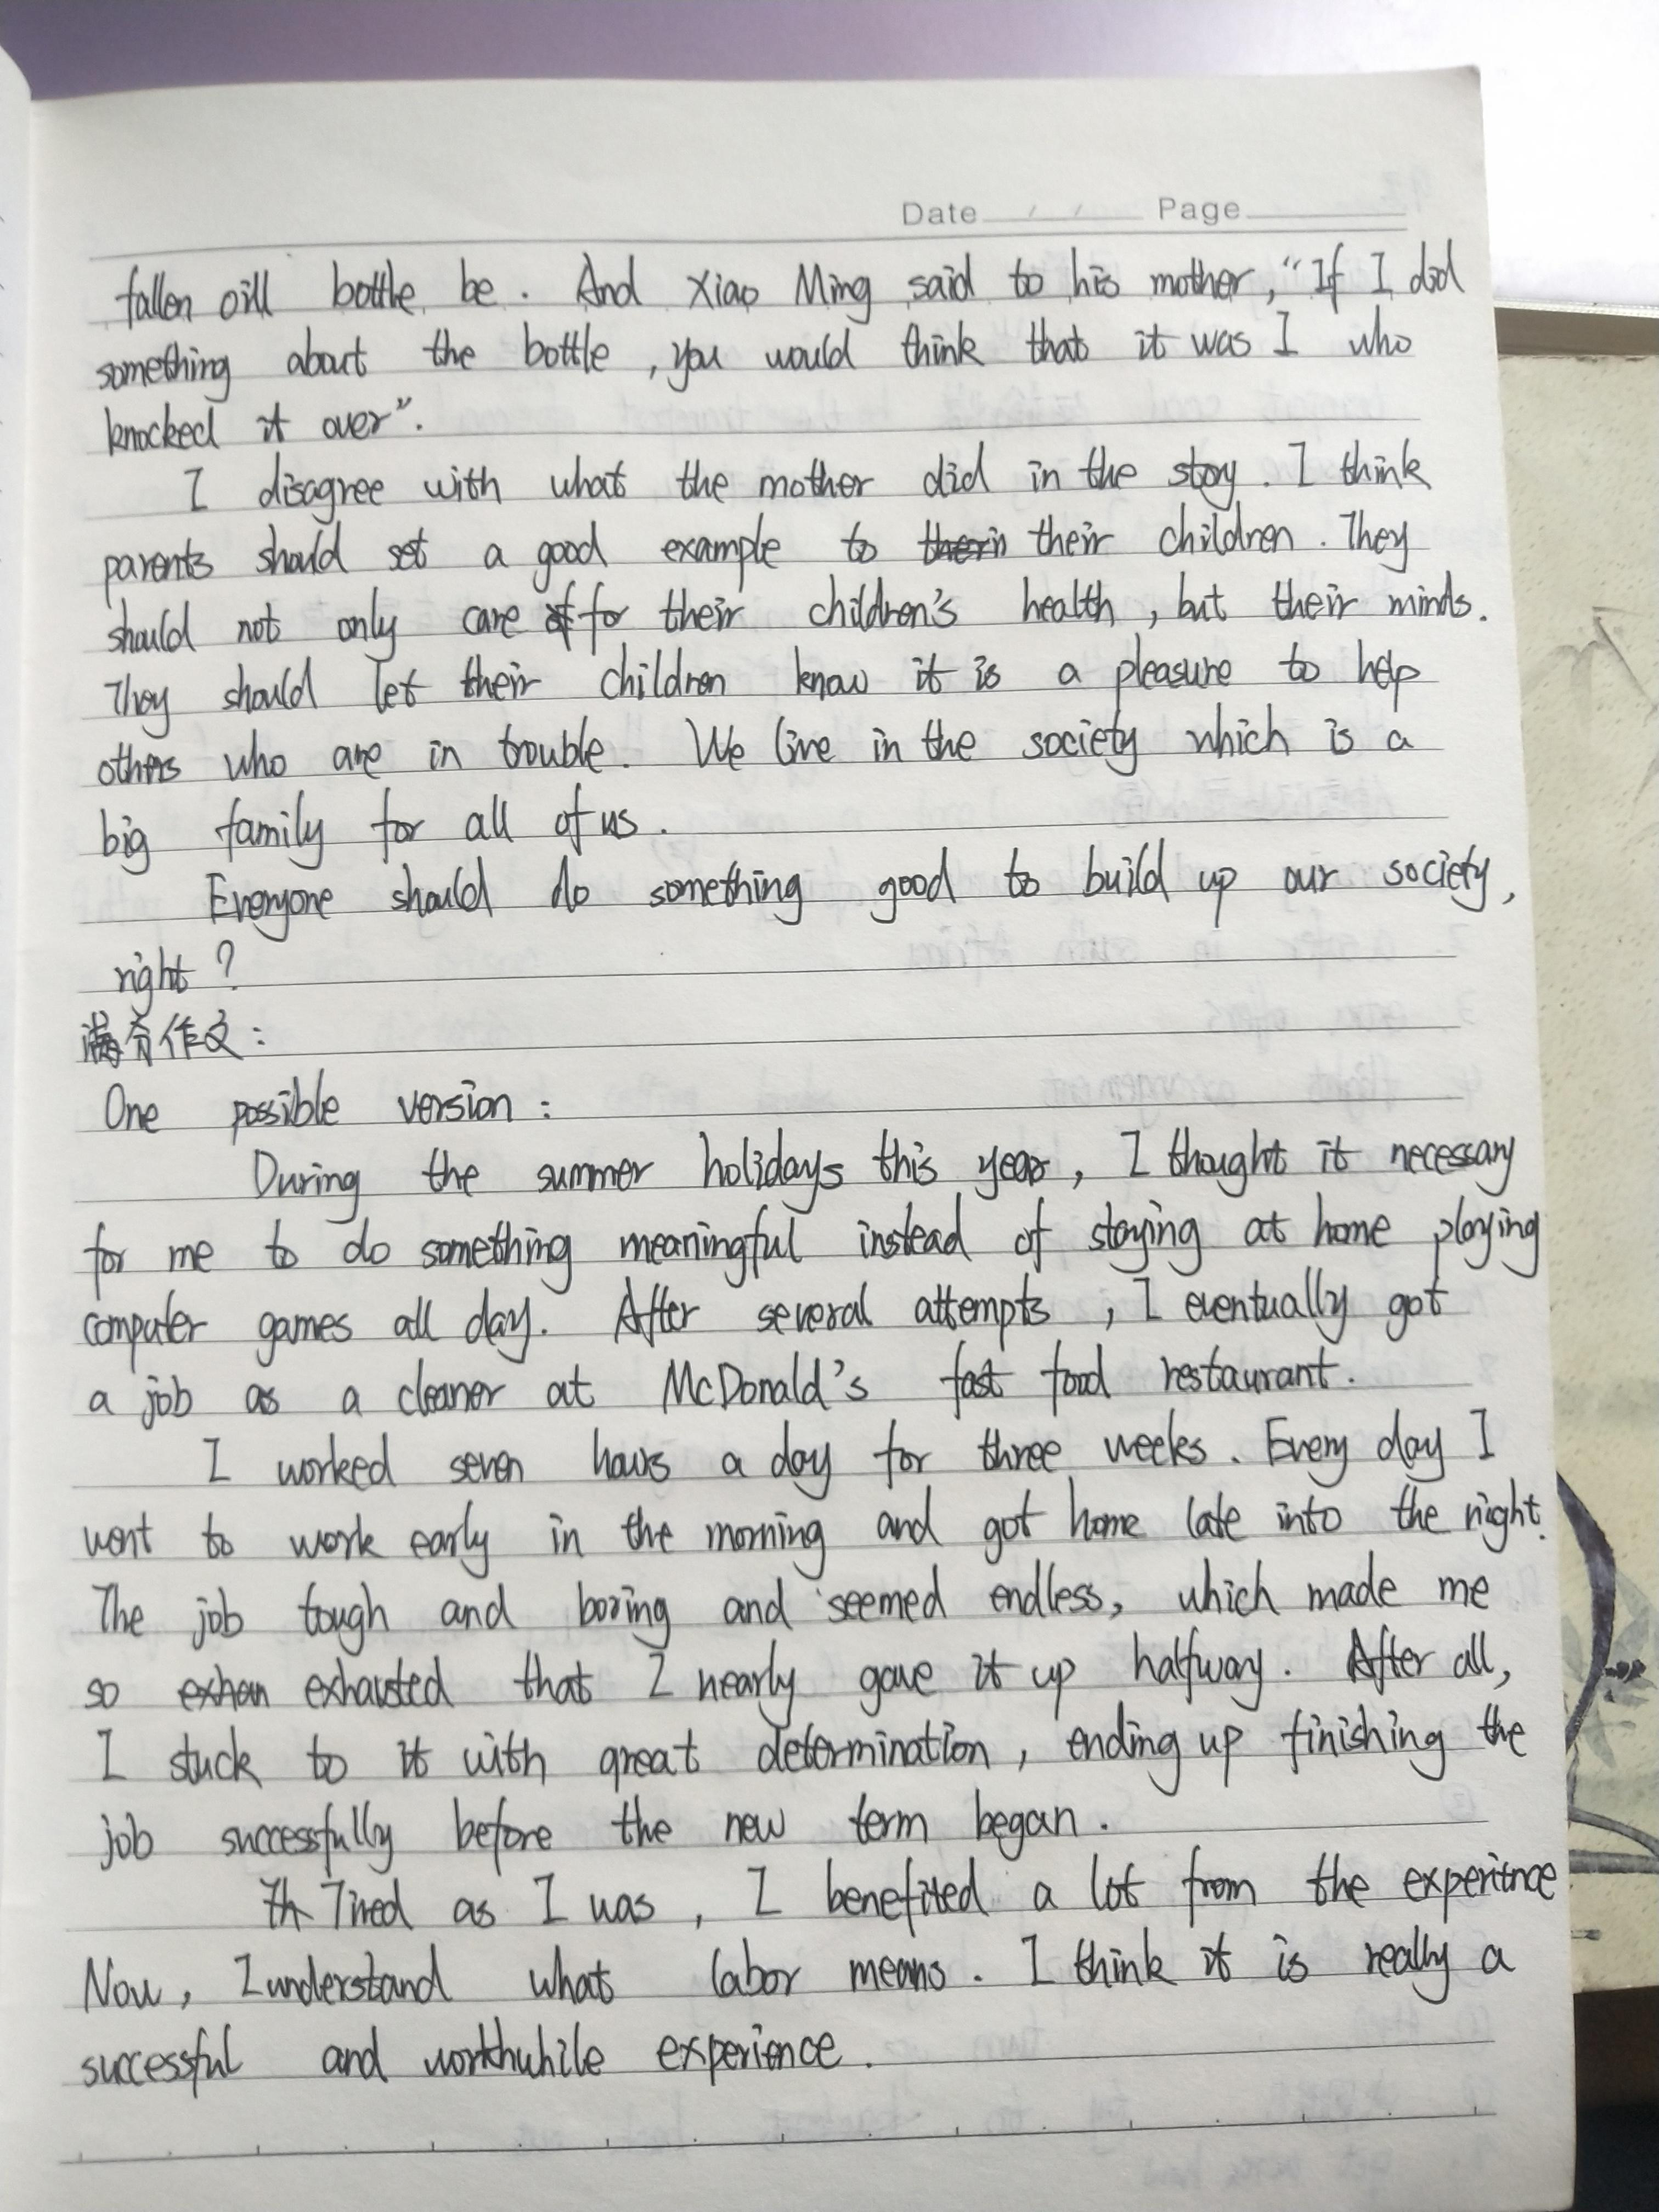 Date / / Page
fallen oill bottle be. And Xiao Ming said to his mother, "If I did
something about the bottle, you would think that it was I who
knocked it over".
I disagree with what the mother did in the story. I think
parents should set a good example to their children. They
should not only care for their children's health, but their minds.
They should let their children know it is a pleasure to help
others who are in trouble. We live in the society which is a
big family for all of us.
Everyone should do something good to build up our society,
right?
满分作文:
One possible version:
During the summer holidays this year, I thought it necessary
for me to do something meaningful instead of staying at home playing
computer games all day. After several attempts, I eventually got
a job as a cleaner at McDonald's fast food restaurant.
I worked seven hours a day for three weeks. Every day I
went to work early in the morning and got home late into the night.
The job tough and boring and seemed endless, which made me
so exhausted that I nearly gave it up halfway. After all,
I stuck to it with great determination, ending up finishing the
job successfully before the new term began.
Tired as I was, I benefited a lot from the experience
Now, I understand what labor means. I think it is really a
successful and worthwhile experience.